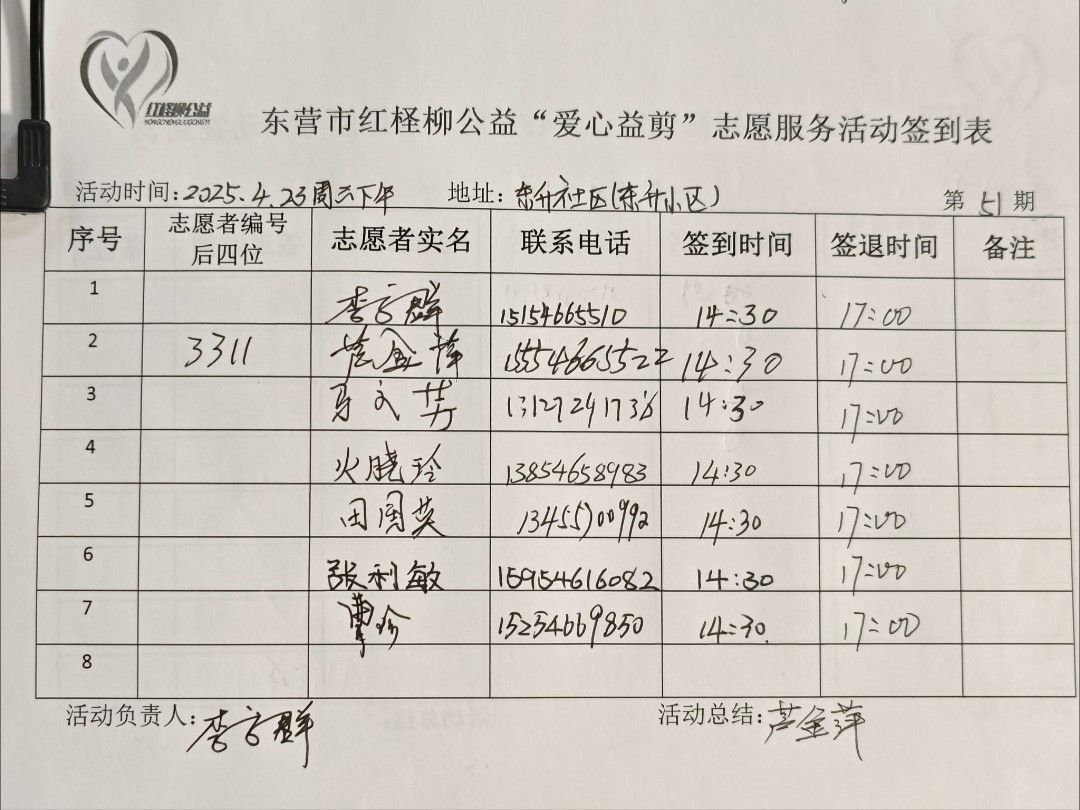 红柽柳公益
HONGCHENGLIUGONGYI
东营市红柽柳公益“爱心益剪”志愿服务活动签到表
活动时间:2025.4.23周三下午 地址:东升社区(东升小区) 第51期
序号 志愿者编号后四位 志愿者实名 联系电话 签到时间 签退时间 备注
1 李方群 15154665510 14:30 17:00
2 3311 芦金萍 15554665522 14:30 17:00
3 马文芳 13127241736 14:30 17:00
4 火晓玲 13854658983 14:30 17:00
5 田国英 14:30 17:00
6 张利敏 15954616082 14:30 17:00
7 珍 15254669850 14:30 17:00
8
活动负责人:李方群 活动总结:芦金萍